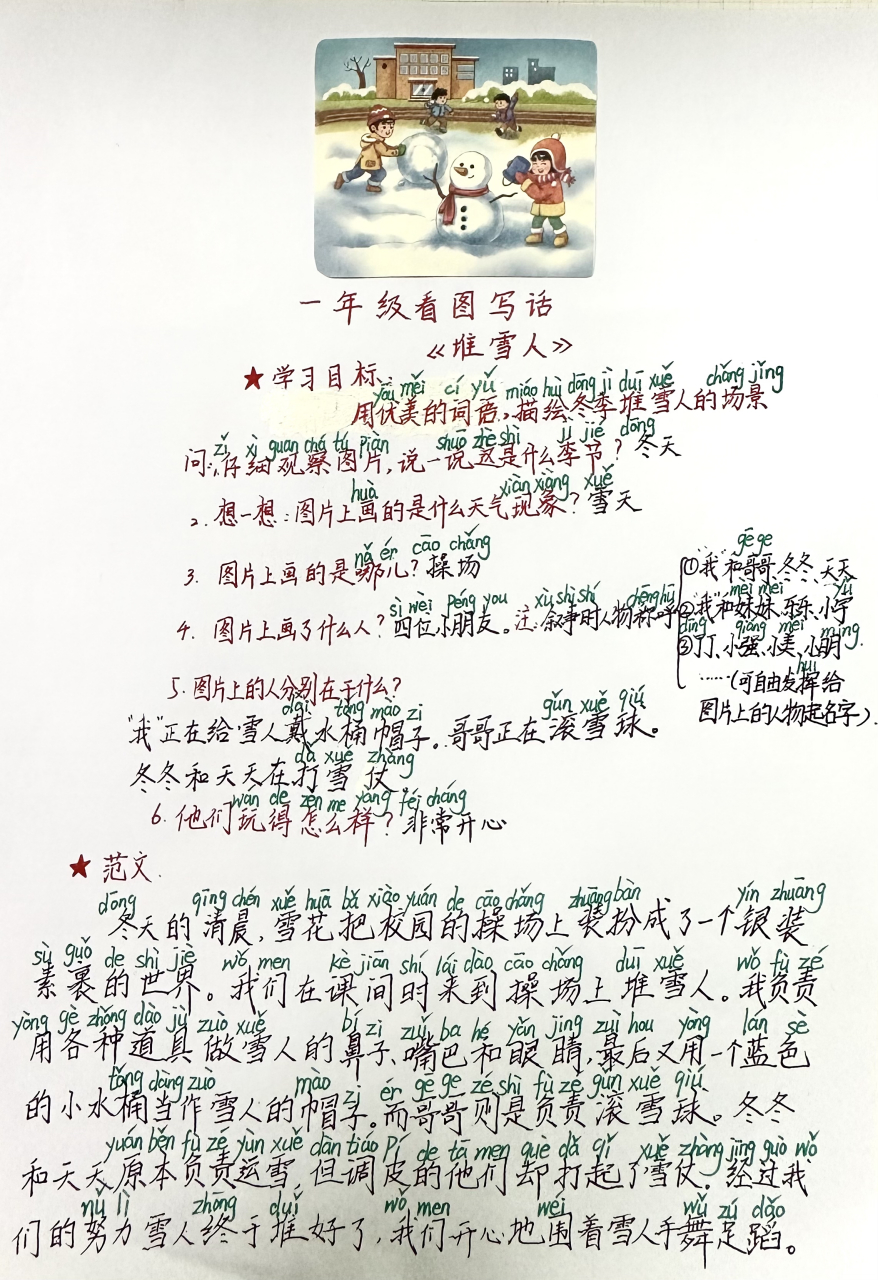 一年级看图写话
《堆雪人》
★学习目标
yōu měi cí yǔ miáo huì dōng jì duī xuě chǎng jǐng
用优美的词语,描绘冬季堆雪人的场景
zǐ xì guan chá tú piàn shuō zhè shì jì jié dōng
问:1.仔细观察图片,说一说这是什么季节?冬天
huà xiàn xiàng xuě
2.想一想:图片上画的是什么天气现象?雪天
nǎ ér cāo chǎng
3. 图片上画的是哪儿?操场
sì wèi péng you xù shì shí chēng hū
4. 图片上画了什么人?四位小朋友。注:叙事时人物称呼
gē ge
①"我"和哥哥、冬冬、天天
mèi mei yǔ
②"我"和妹妹、乐乐、小宇
dīng qiáng měi míng
③丁丁、小强、小美、小明
huī
……(可自由发挥给
图片上的人物起名字).
5.图片上的人分别在干什么?
dài tǒng mào zi gǔn xuě qiú
"我"正在给雪人戴水桶帽子。哥哥正在滚雪球。
dǎ xuě zhàng
冬冬和天天在打雪仗.
wán de zěn me yàng fēi cháng
6.他们玩得怎么样?非常开心
★范文.
dōng qīng chén xuě huā bǎ xiào yuán de cāo chǎng zhuāng bàn yín zhuāng
冬天的清晨,雪花把校园的操场上装扮成了一个银装
sù guǒ de shì jiè wǒ men kè jiān shí lái dào cāo chǎng duī xuě wǒ fù zé
素裹的世界。我们在课间时来到操场上堆雪人。我负责
yòng gè zhǒng dào jù zuò xuě bí zi zuǐ ba hé yǎn jing zuì hou yòng lán sè
用各种道具做雪人的鼻子、嘴巴和眼睛,最后又用一个蓝色
tǒng dāng zuò mào zi ér gē ge zé shì fù zé gǔn xuě qiú
的小水桶当作雪人的帽子。而哥哥则是负责滚雪球。冬冬
yuán běn fù zé yùn xuě dàn tiáo pí de tā men què dǎ qǐ xuě zhàng jīng guò wǒ
和天天原本负责运雪,但调皮的他们却打起了雪仗.经过我
nǔ lì zhōng duī wǒ men wéi wǔ zú dǎo
们的努力雪人终于堆好了,我们开心地围着雪人手舞足蹈。